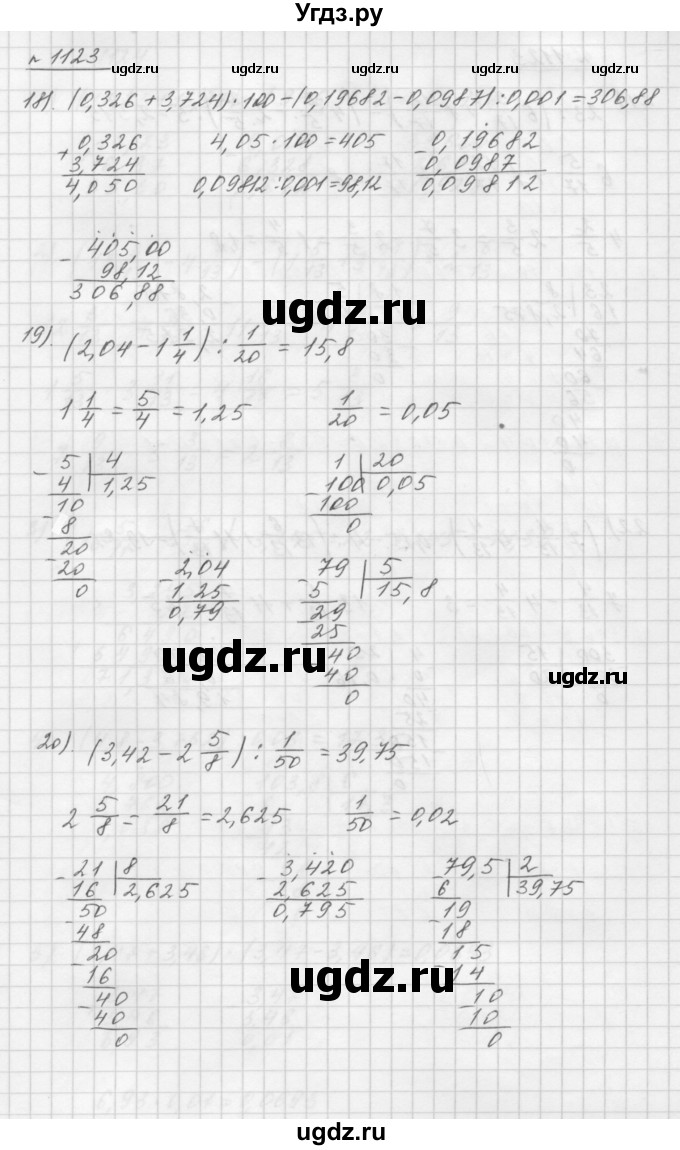 Угдз.ру
n 1123
ugdz.ru ugdz.ru ugdz.ru
18). (0,326 + 3,724) · 100 − (0,19682 − 0,0987) : 0,001 = 306,88
+ 0,326   4,05 · 100 = 405   − 0,19682
3,724   0,0987
4,050   0,09812 : 0,001 = 98,12   0,09812
ugdz.ru ugdz.ru ugdz.ru
− 405,00
98,12
306,88
ugdz.ru
19) (2,04 − 1 1/4) : 1/20 = 15,8
ugdz.ru ugdz.ru
1 1/4 = 5/4 = 1,25   1/20 = 0,05
− 5 | 4   1 | 20
4 | 1,25   − 100 | 0,05
− 10   100
8   0
− 20
20   − 2,04   − 79 | 5
0   1,25   5 | 15,8
0,79   − 29
25
− 40
40
0
ugdz.ru ugdz.ru ugdz.ru
ugdz.ru ugdz.ru
20). (3,42 − 2 5/8) : 1/50 = 39,75
2 5/8 = 21/8 = 2,625   1/50 = 0,02
ugdz.ru ugdz.ru ugdz.ru
− 21 | 8   − 3,420   − 79,5 | 2
16 | 2,625   2,625   6 | 39,75
− 50   0,795   − 19
48   18
− 20   − 15
16   14
− 40   − 10
40   10
0   0
ugdz.ru
ugdz.ru ugdz.ru
ugdz.ru